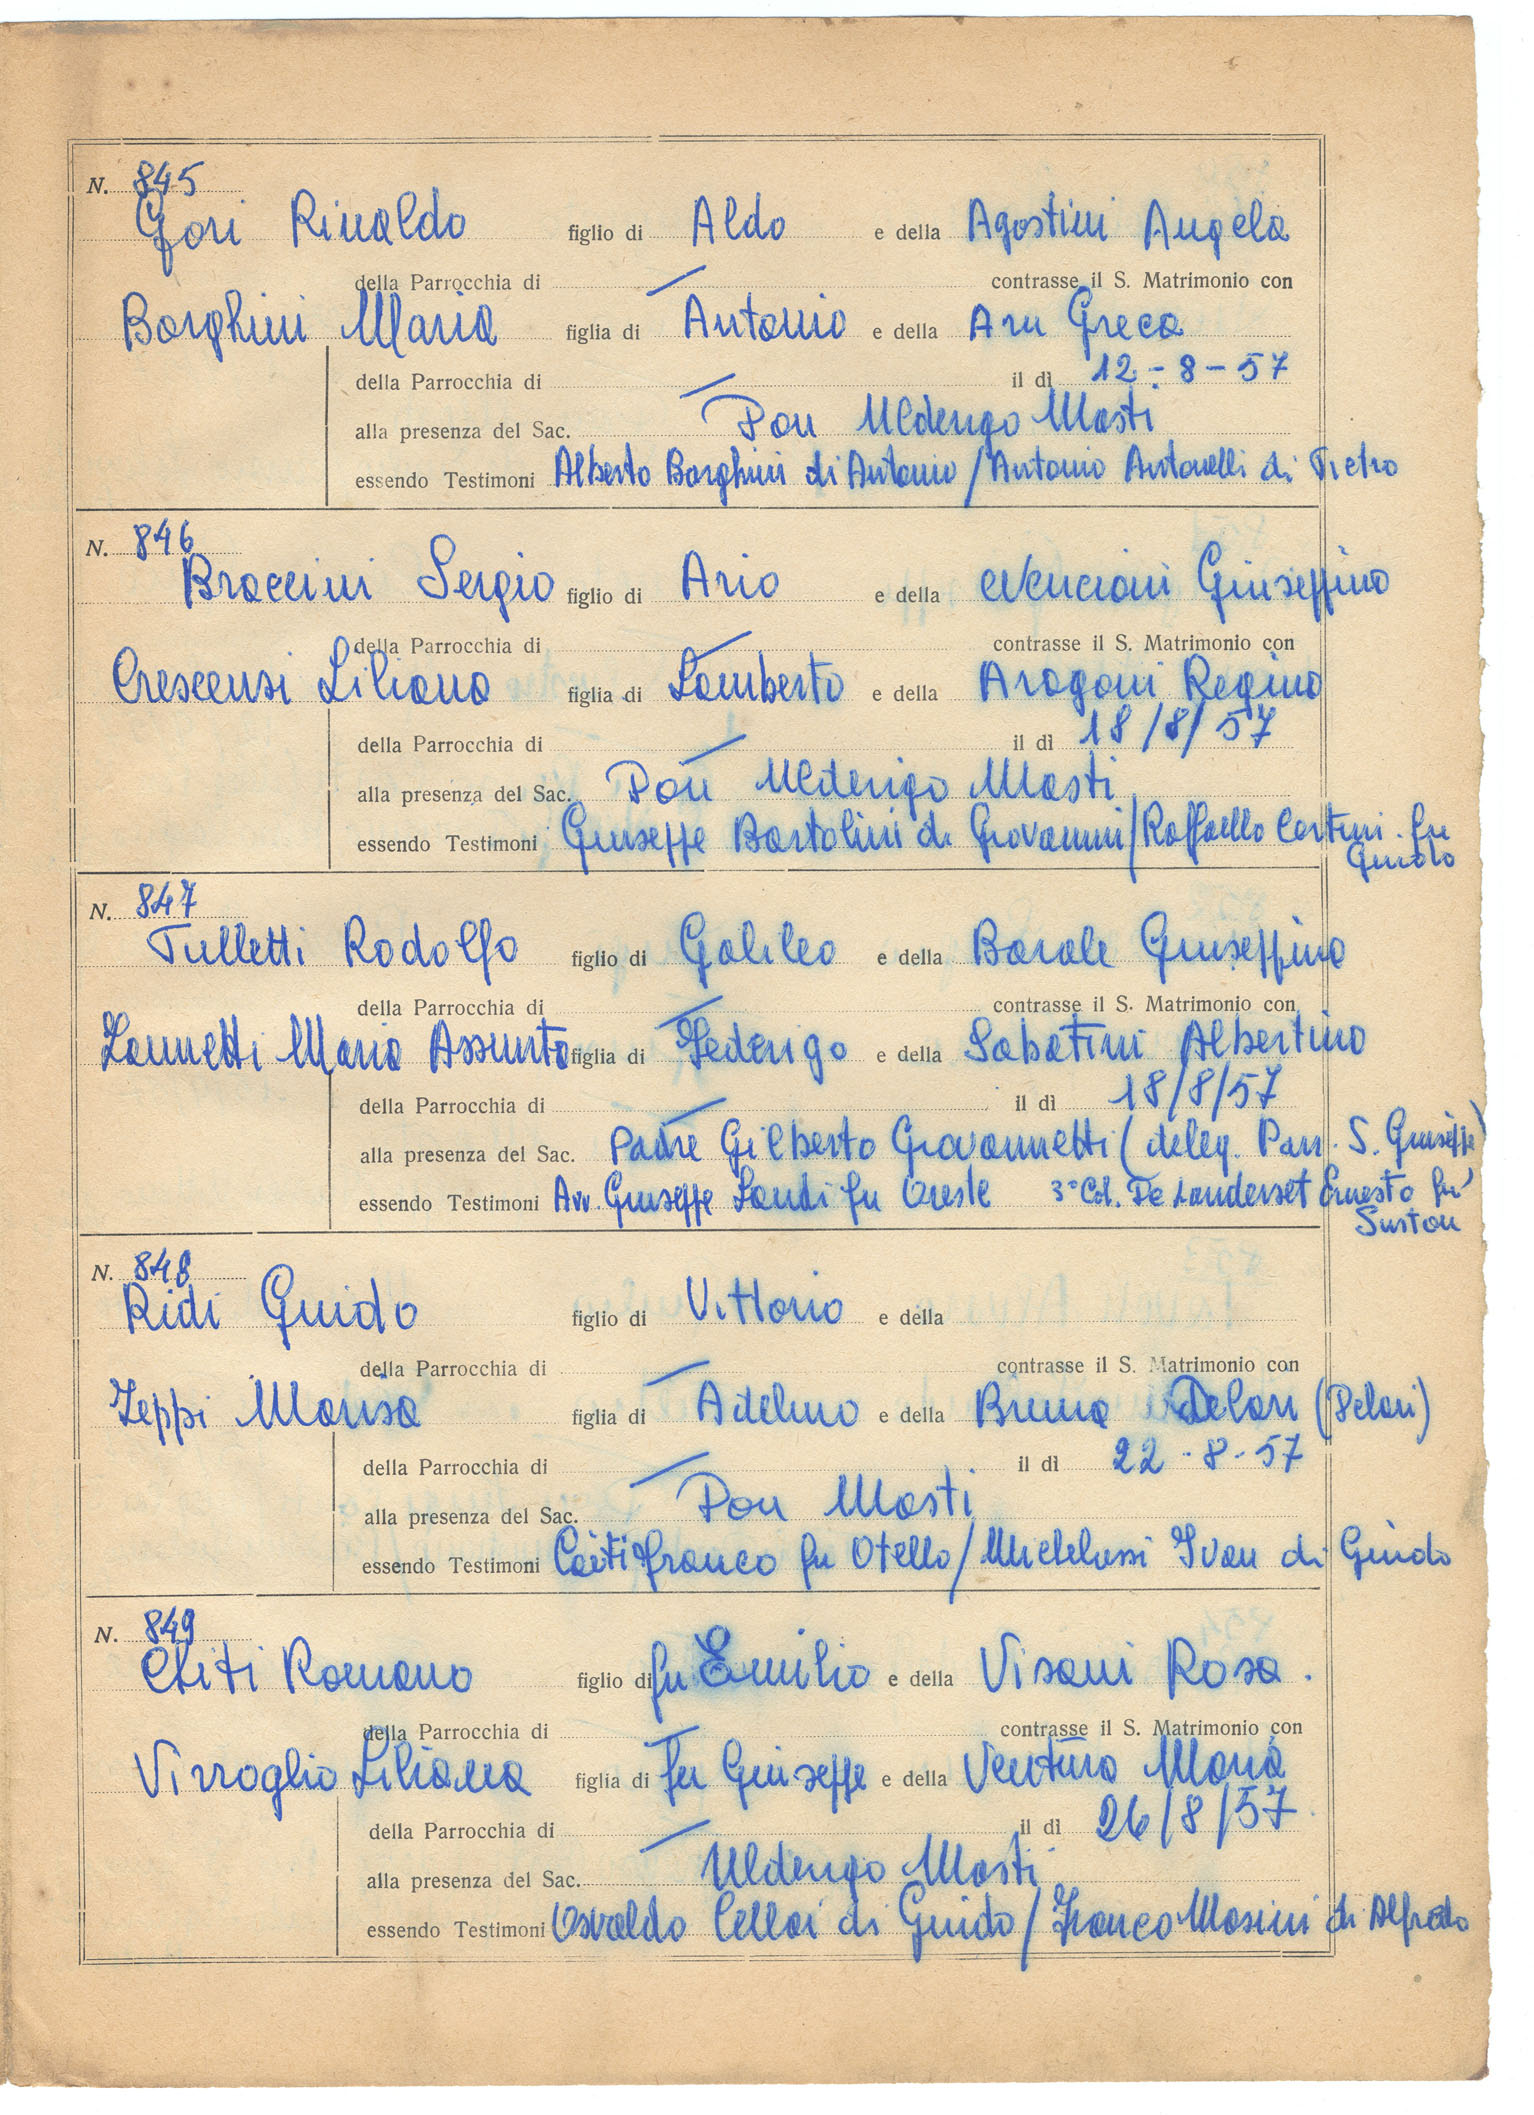 N. 845
Gori Rinaldo figlio di Aldo e della Agostini Angela
della Parrocchia di contrasse il S. Matrimonio con
Borghini Maria figlia di Antonio e della Aru Greca
della Parrocchia di il dì 12-8-57
alla presenza del Sac. Don Ulderigo Masti
essendo Testimoni Alberto Borghini di Antonio / Antonio Antonelli di Pietro
N. 846
Braccini Sergio figlio di Ario e della Nencioni Giuseppina
della Parrocchia di contrasse il S. Matrimonio con
Crescensi Liliana figlia di Lamberto e della Aragoni Regina
della Parrocchia di il dì 18/8/57
alla presenza del Sac. Don Ulderigo Masti
essendo Testimoni Giuseppe Bartolini di Giovanni / Raffaello Certini fu
N. 847
Tulletti Rodolfo figlio di Galileo e della Barale Giuseppina
della Parrocchia di contrasse il S. Matrimonio con
Zannetti Maria Assunta figlia di Federigo e della Sabatini Albertina
della Parrocchia di il dì 18/8/57
alla presenza del Sac. Padre Gilberto Giovannetti (deleg. Parr. S. Giuseppe)
essendo Testimoni Avv. Giuseppe Landi fu Oreste 3° Col. De Landerset Ernesto fu
N. 848
Ridi Guido figlio di Vittorio e della
della Parrocchia di contrasse il S. Matrimonio con
Zeppi Marisa figlia di Adelmo e della Bruna Delari (Delari)
della Parrocchia di il dì 22-8-57
alla presenza del Sac. Don Masti
essendo Testimoni Franco fu Otello / Michelassi Ivan di Guido
N. 849
Chiti Romano figlio di fu Emilio e della Visani Rosa.
della Parrocchia di contrasse il S. Matrimonio con
Virroglio Liliana figlia di fu Giuseppe e della Ventura Maria
della Parrocchia di il dì 26/8/57
alla presenza del Sac. Ulderigo Masti
essendo Testimoni Osvaldo Cellai di Guido / Franco Masini di Alfredo